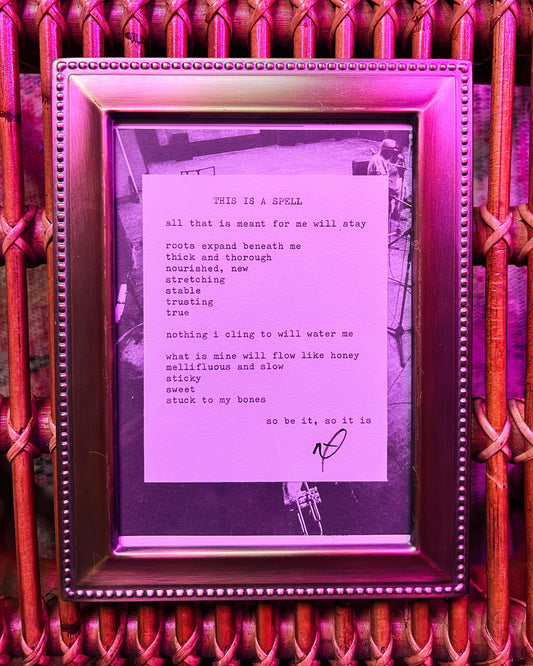 THIS IS A SPELL
all that is meant for me will stay
roots expand beneath me
thick and thorough
nourished, new
stretching
stable
trusting
true
nothing i cling to will water me
what is mine will flow like honey
mellifluous and slow
sticky
sweet
stuck to my bones
so be it, so it is